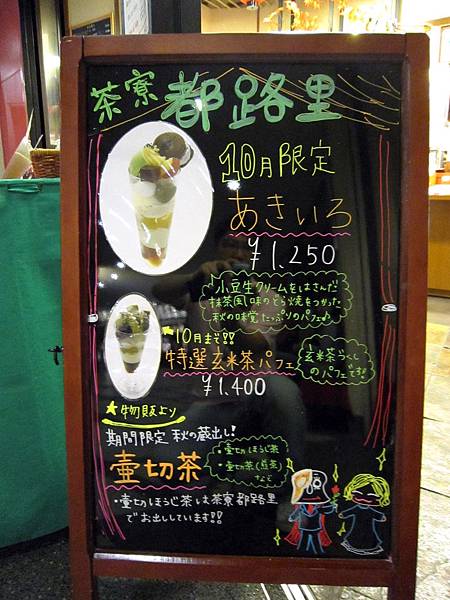 茶寮 都路里
10月限定
あきいろ
¥1.250
♪小豆生クリームをはさんだ
抹茶風味のどら焼をつかった
秋の味覚たっぷりのパフェ♪
*10月まで!!
特選玄米茶パフェ
¥1.400
玄米茶づくし
のパフェです!
★物販より
期間限定 秋の蔵出し!
壷切茶
・壷切ほうじ茶
・壷切茶(煎茶)
など
・壷切ほうじ茶は茶寮都路里
でお出ししています!!